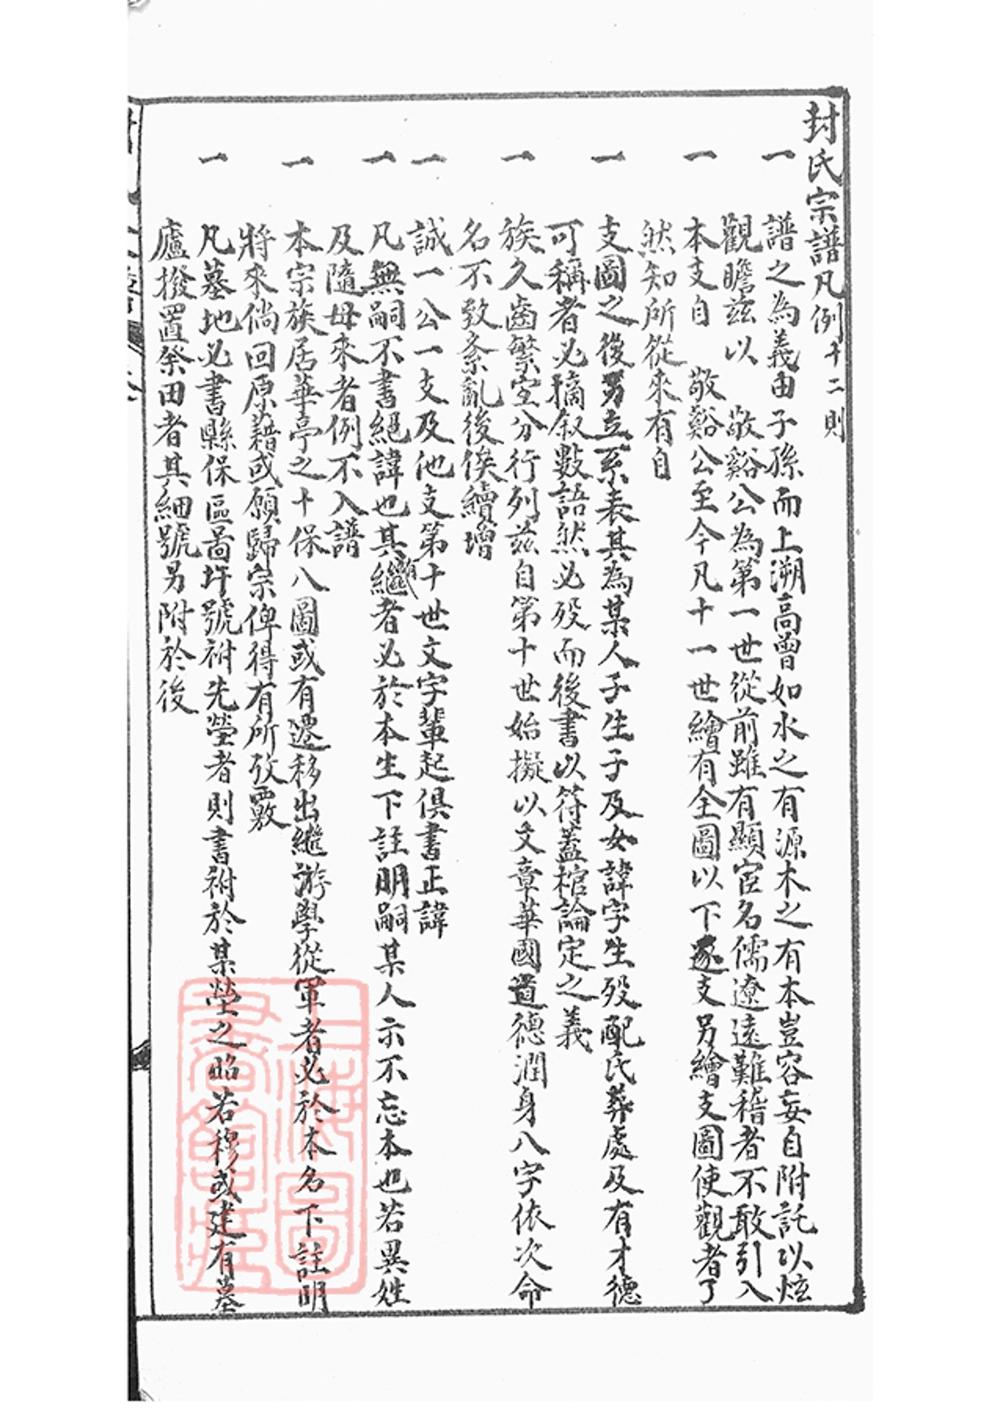 封氏宗譜凡例十二則
一 譜之為義由子孫而上溯高曾如水之有源木之有本豈容妄自附託以炫
觀瞻兹以 敬谿公為第一世從前雖有顯宦名儒遼遠難稽者不敢引入
一 本支自 敬谿公至今凡十一世繪有全圖以下逐支另繪支圖使觀者了
然知所從來有自
一 支圖之後另立一系表其為某人子生子及女諱字生歿配氏葬處及有才德
可稱者必摘叙數語然必歿而後書以符蓋棺論定之義
一 族久齒繁宜分行列兹自第十世始擬以文章華國道德潤身八字依次命
名不致紊亂後俟續增
一 誠一公一支及他支第十世文字輩起俱書正諱
一 凡無嗣不書絕諱也其繼者必於本生下註明嗣某人示不忘本也若異姓
及隨母來者例不入譜
一 本宗族居華亭之十保八圖或有遷移出繼游學從軍者必於本名下註明
將來倘回原籍或願歸宗俾得有所攷覈
一 凡墓地必書縣保區啚圩號祔先塋者則書祔於某塋之昭若穆或建有墓
廬撥置祭田者其細號另附於後
上海圖
書館藏